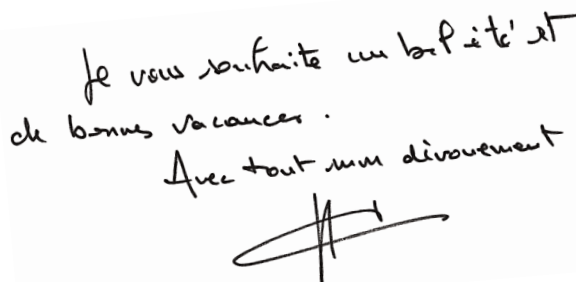 Je vous souhaite un bel été et
de bonnes vacances.
Avec tout mon dévouement